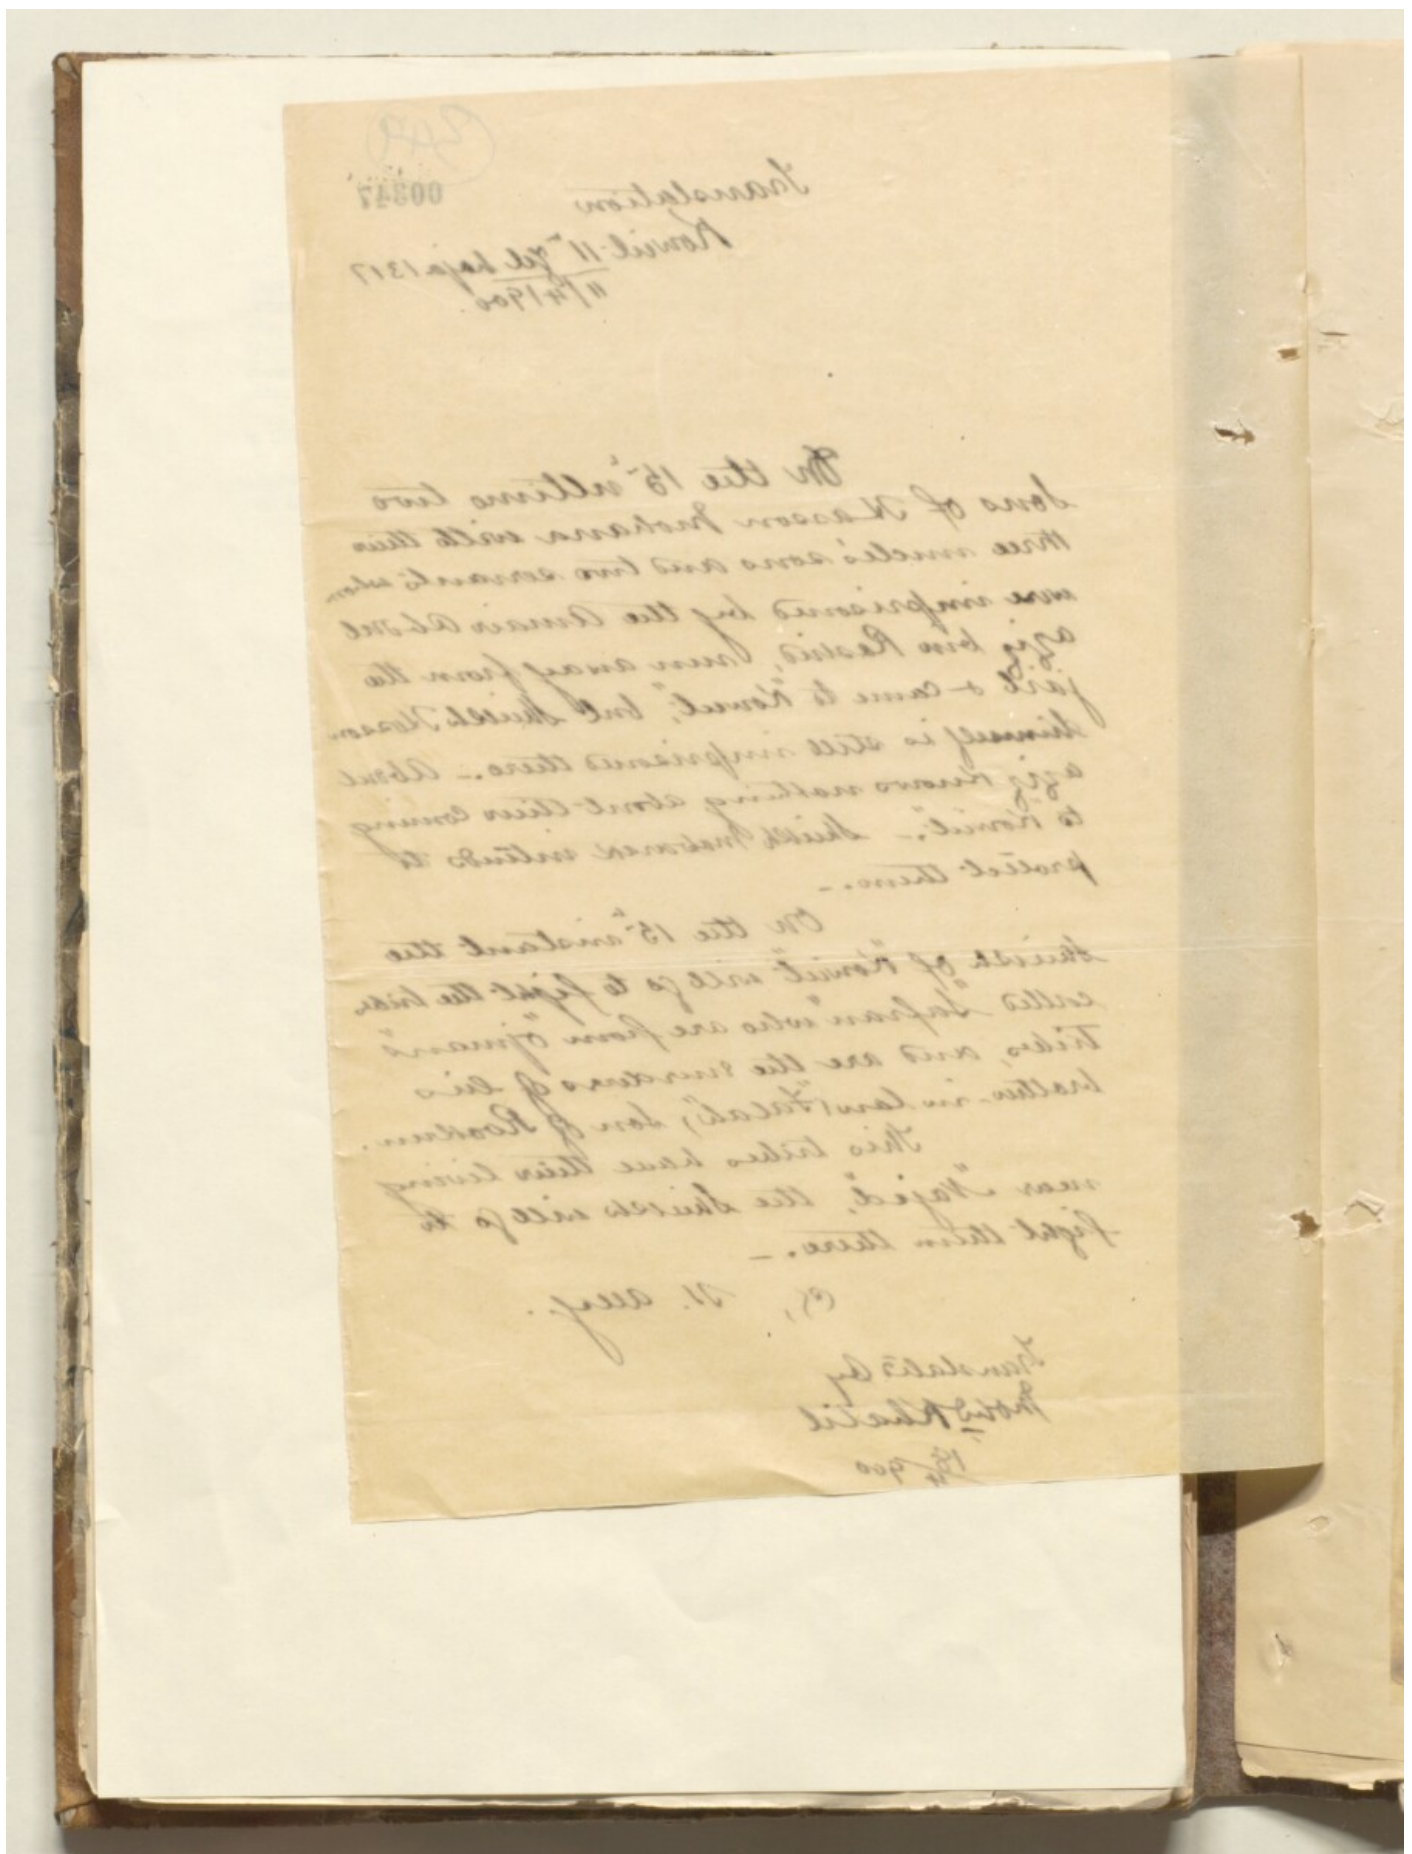 00347
Translation
Koweit 11th Zel haja 1317
11/4/1900.
On the 15th ultimo two
sons of Hasson Mohanna with their
three uncle's sons and two servants whom
were imprisoned by the Amair Abdul
aziz bin Rashid, run away from the
jail & came to "Koweit", but Shaikh Hasson
himself is still imprisoned there. - Abdul
aziz knows nothing about their coming
to "Koweit". - Shaikh Mobarek intends to
protect them. -
On the 15th instant the
Shaikh of "Koweit" will go to fight the tribe
called "Safran" who are from "Ojmans"
Tribes, and are the murders of his
brother-in-law "Falah", son of Hooklum.
This tribes have their living
near "Najed", the Shaikh will go to
fight them there. -
H. Ally.
Translated by
Mohd Khalil
/900